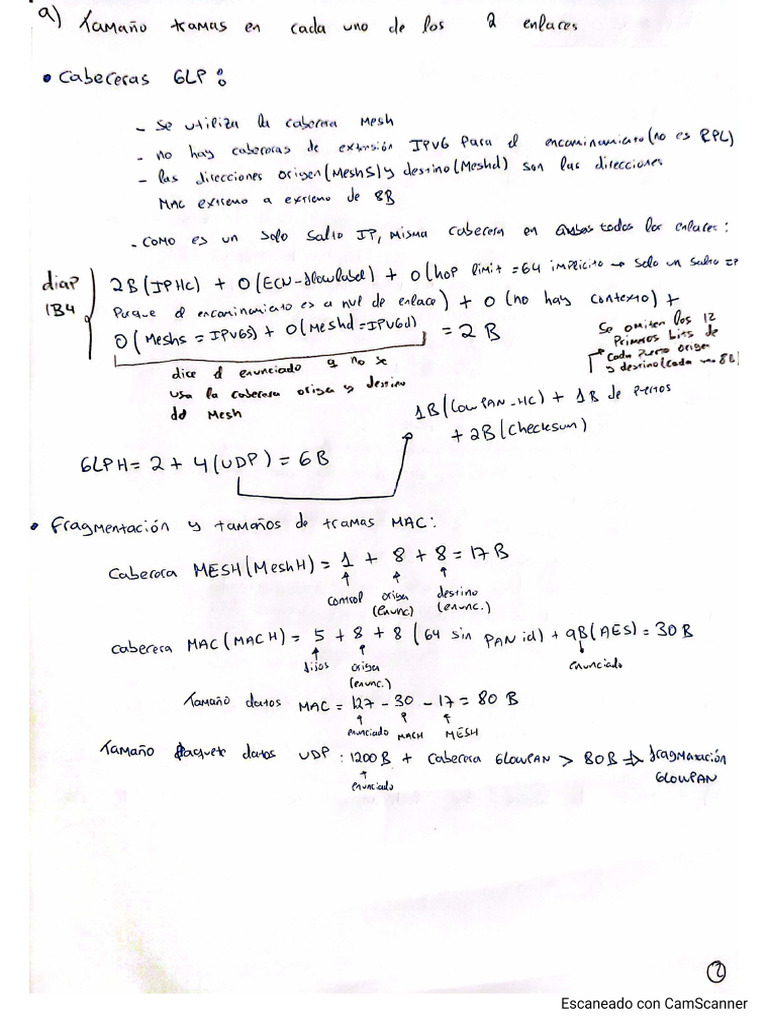 a) Tamaño tramas en cada uno de los 2 enlaces
• Cabeceras 6LP:
- Se utiliza la cabecera Mesh
- no hay cabeceras de extensión IPV6 para el encaminamiento (no es RPL)
- las direcciones origen (MeshS) y destino (Meshd) son las direcciones
MAC extremo a extremo de 8B
- Como es un solo salto IP, misma cabecera en todos los enlaces:
diap
184
2B (IPHC) + 0 (ECN-flowlabel) + 0 (hop limit = 64 implícito → solo un salto IP
Porque el encaminamiento es a nivel de enlace) + 0 (no hay contexto) +
0 (Meshs = IPV6s) + 0 (Meshd = IPV6d) = 2 B
dice el enunciado q no se
usa la cabecera origen y destino
del Mesh
Se omiten los 12
Primeros bits de
cada puerto origen
y destino (cada uno 8b)
1B (LowPAN-HC) + 1B de puertos
+ 2B (Checksum)
6LPH = 2 + 4 (UDP) = 6 B
• Fragmentación y tamaños de tramas MAC:
Cabecera MESH (MeshH) = 1 + 8 + 8 = 17 B
control origen (enunc) destino (enunc.)
Cabecera MAC (MACH) = 5 + 8 + 8 (64 sin PAN id) + 9B (AES) = 30 B
fijos origen (enunc.) enunciado
Tamaño datos MAC = 127 - 30 - 17 = 80 B
enunciado MACH MESH
Tamaño paquete datos UDP: 1200 B + cabecera 6LOWPAN > 80B ⇒ fragmentación
6LOWPAN
enunciado
2
Escaneado con CamScanner